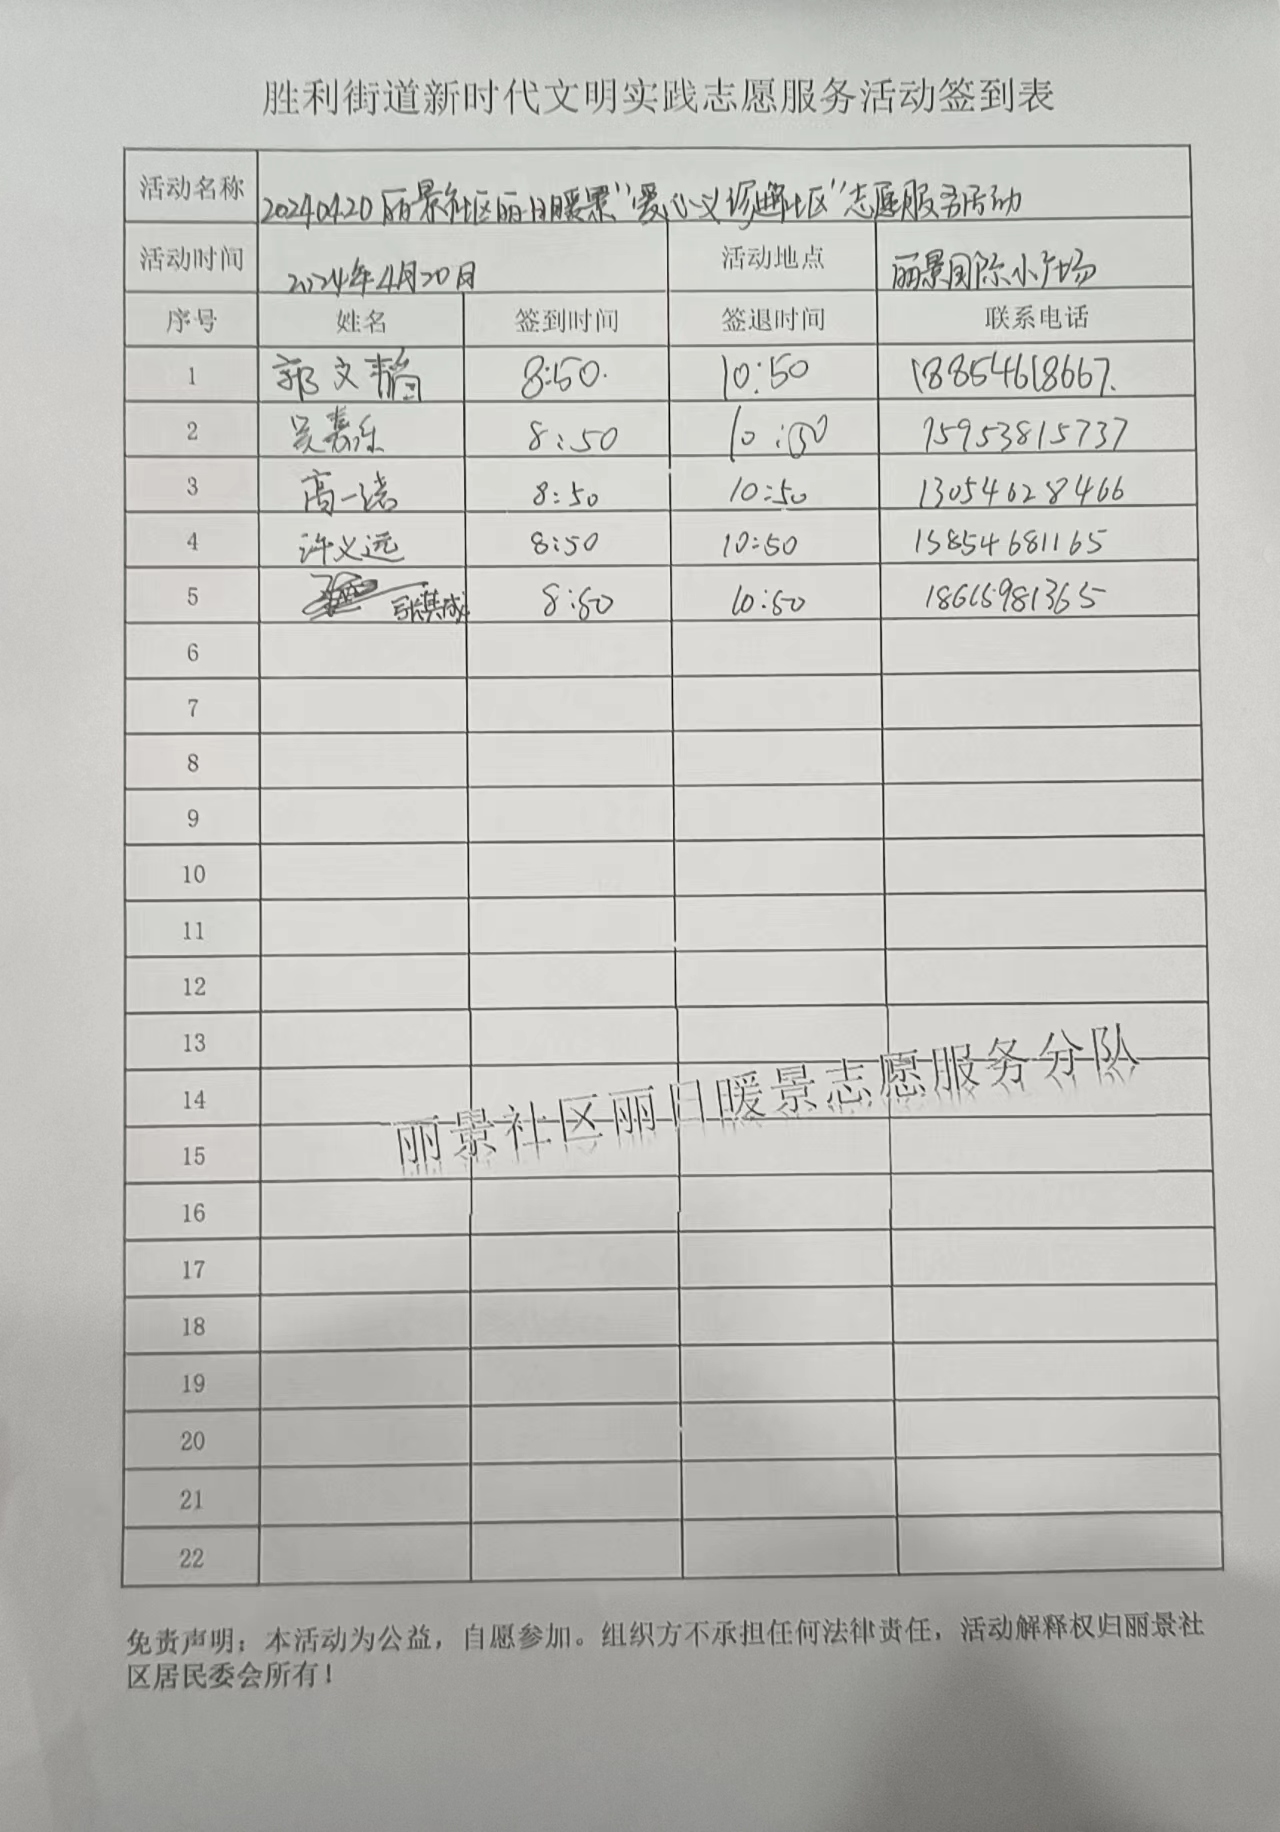 胜利街道新时代文明实践志愿服务活动签到表
活动名称 20240420丽景社区丽日暖景"爱心义诊进社区"志愿服务活动
活动时间 2024年4月20日 活动地点 丽景国际小广场
序号 姓名 签到时间 签退时间 联系电话
1 郭文韬 8:50. 10:50 18854618667.
2 吴嘉乐 8:50 10:50 15953815737
3 高一 8:50 10:50 13054628466
4 许义远 8:50 10:50 15854681165
5 张其成 8:50 10:50 18615981365
6
7
8
9
10
11
12
13
14
丽景社区丽日暖景志愿服务分队
15
16
17
18
19
20
21
22
免责声明：本活动为公益，自愿参加。组织方不承担任何法律责任，活动解释权归丽景社
区居民委会所有！